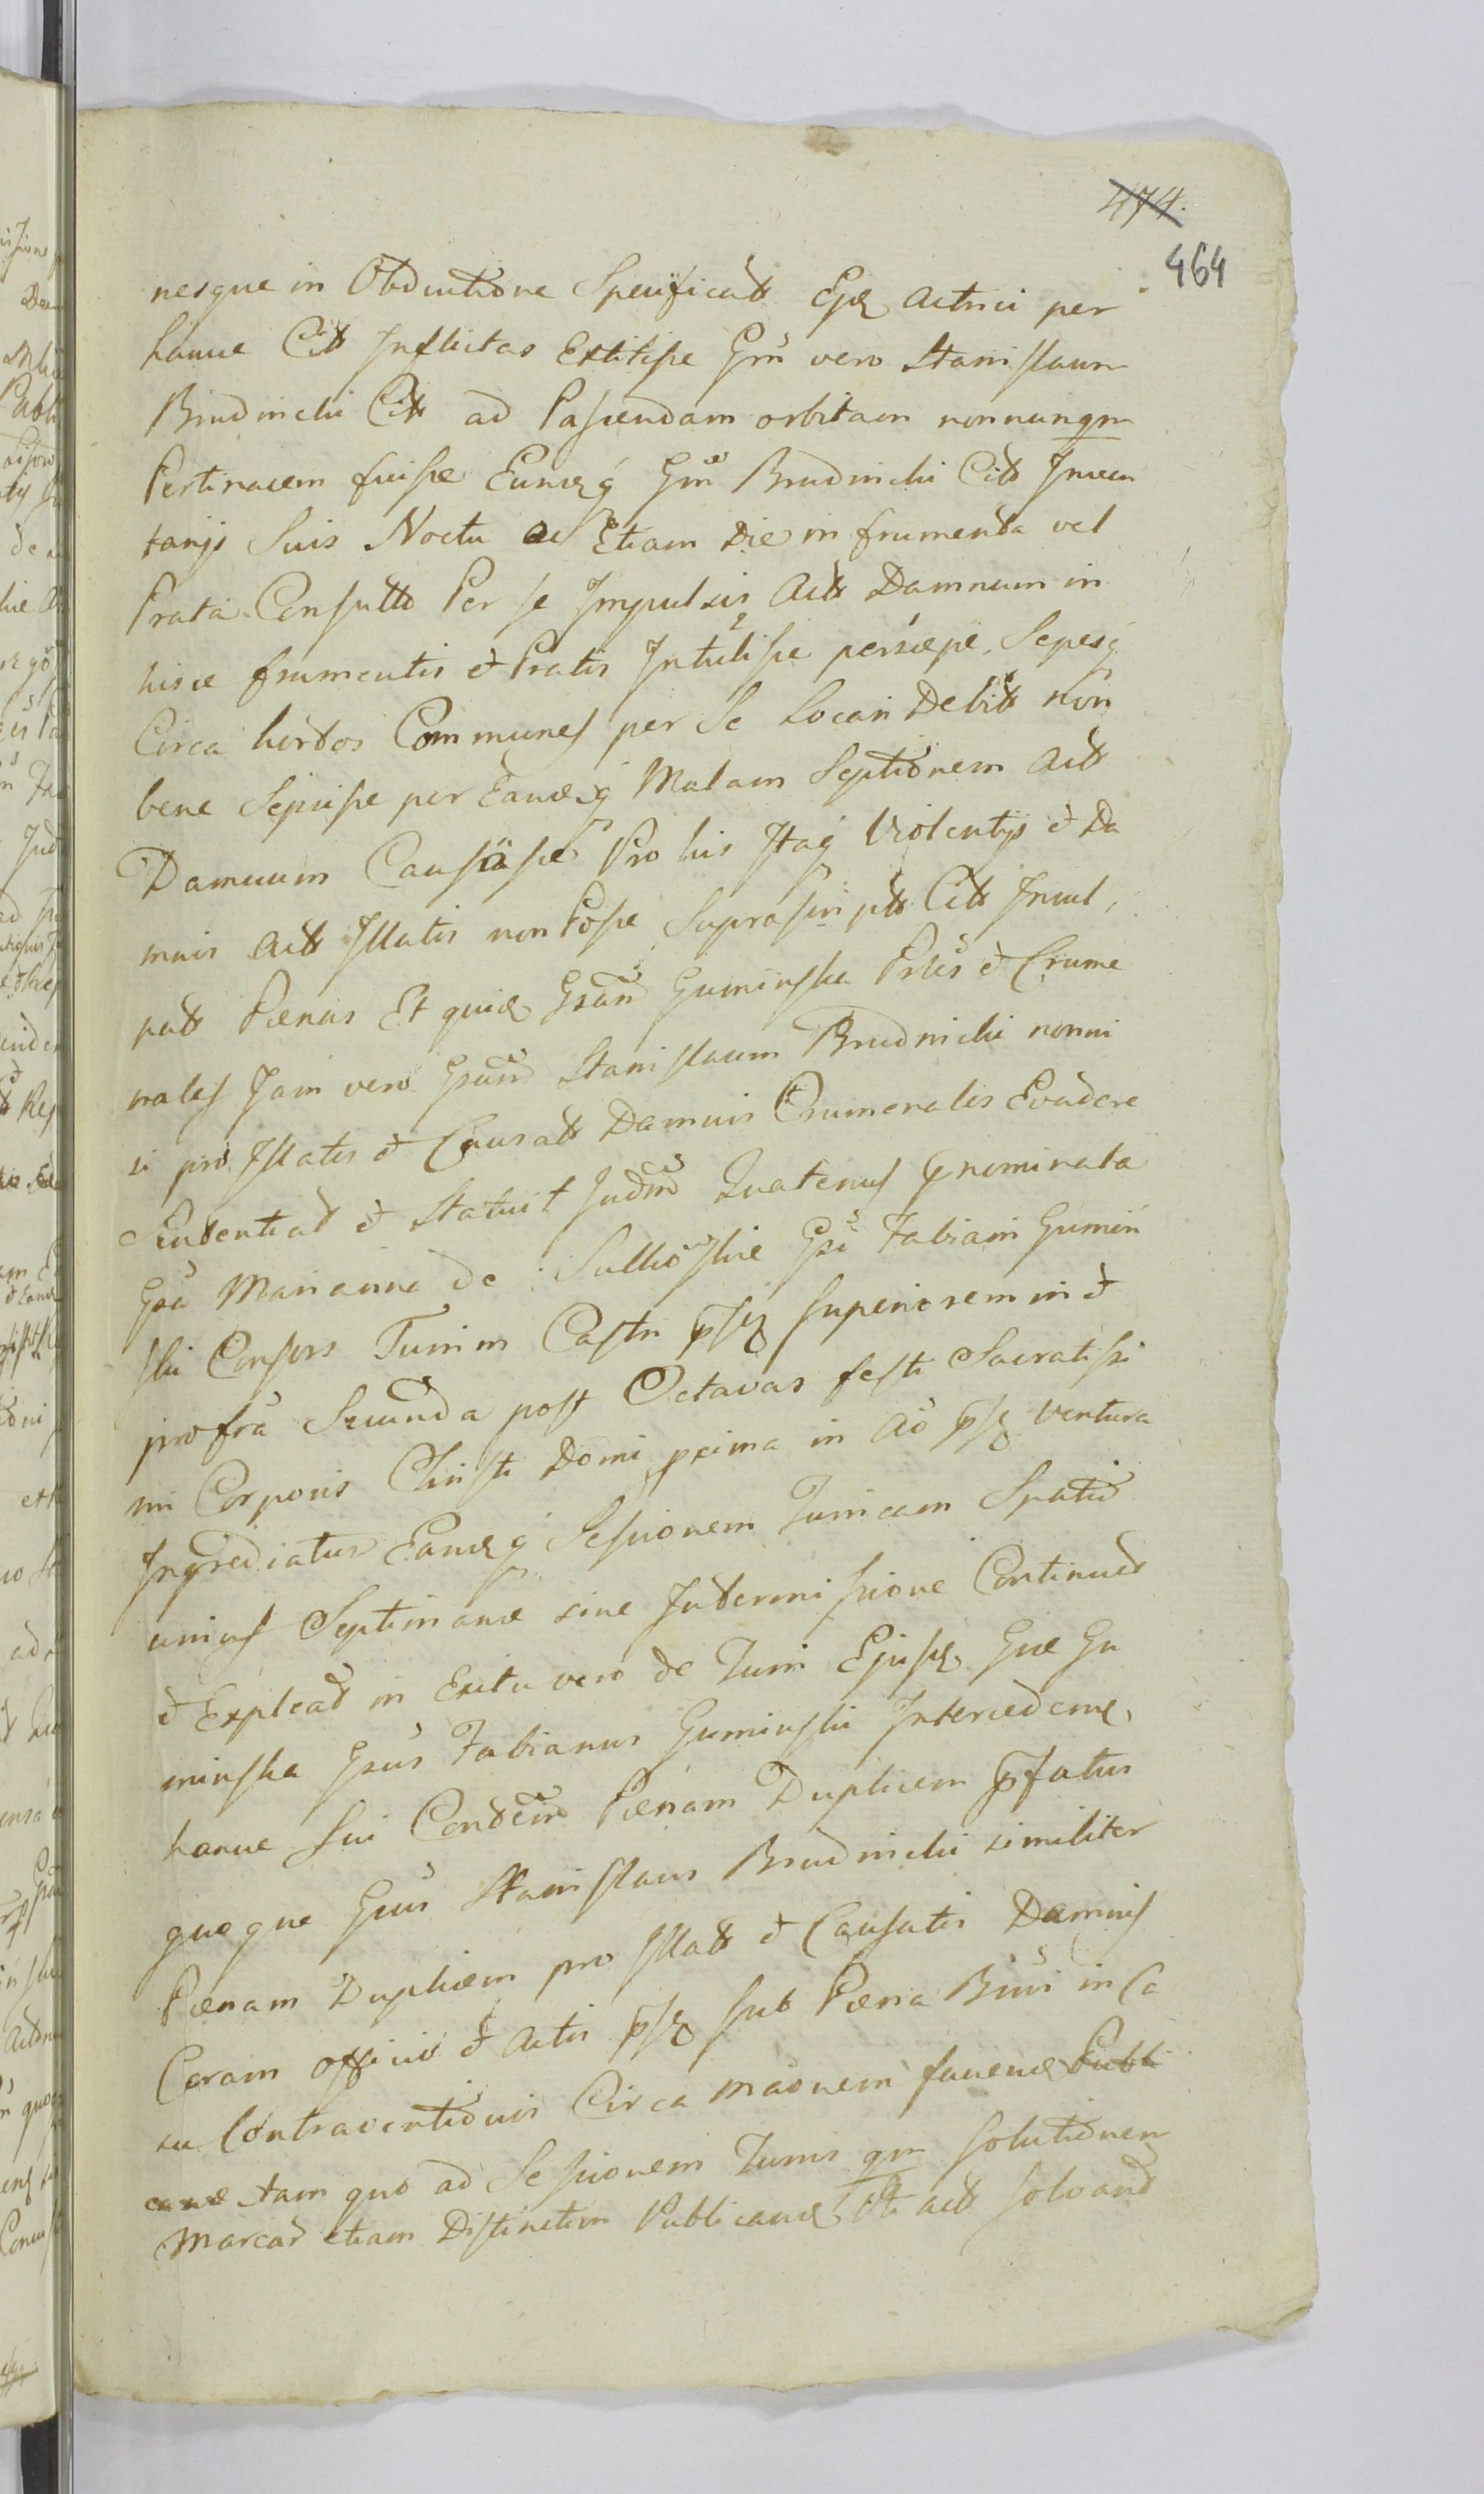 474.
464
nesque in Obductione Specificat Ejq Actrici per
hance Citt Inflictas Extitisse Grm vero Stanislaum
Brudnicki Citt ad Pasiendam orbitam nonnunqm
Pertinacem fuisse Eumq Grm Brudnicki Citt Inven
tarijs Suis Noctu ac Etiam Die in frumenta vel
Prata Consulto Per se Impulsis Actt Damnum in
hisce frumentis et Pratis Intulisse persæpe, Sepesq
Circa hortos Communes per Se Locari Debitt non
bene Sepsisse per Eamq Malam Septionem Actt
Damnum Causasse Pro his Itaq Violentijs et Da
mnis Actt Illatis non Posse Suprascriptt Citt Incul,
patt Pænas Et quidem Gsam Guminska Prlis et Crume
nales Jam vero Gsum Stanislaum Brudnicki nonni
si pro Illatis et Causatt Damnis Crumenales Evadere
Sententiat et Statuit Judm Quatenus pnominata
Gsa Marianna de Gsi Fabiani Gumiń
ski Consors Turrim Castri psq superiorem in et
pro fra Secunda post Octavas festi Sacratissi
mi Corporis Christi Domi prima in Ao psq ventura
Ingrediatur Eamq Sessionem Turricam Spatio
unius Septimanæ sine Intermissione Continuet
et Expleat in Exitu vero de Turri Ejusq Gsæ Gu
minska Gsus Fabianus Guminski Intercedene,
hance Sui Pænam Duplicem pfatus
quoque Gsus Stanislaus Brudnicki similiter
Pænam Duplicem pro Illatt et Causatis Damnis
Coram officio et Actis psq sub Pæna Bnni in Ca
su Contraventionis Circa maonem favene Publi
cane tam quo ad Sessionem Turris qm Solutionem
Marcar etiam Distinctim Publicane Pti actt solvant